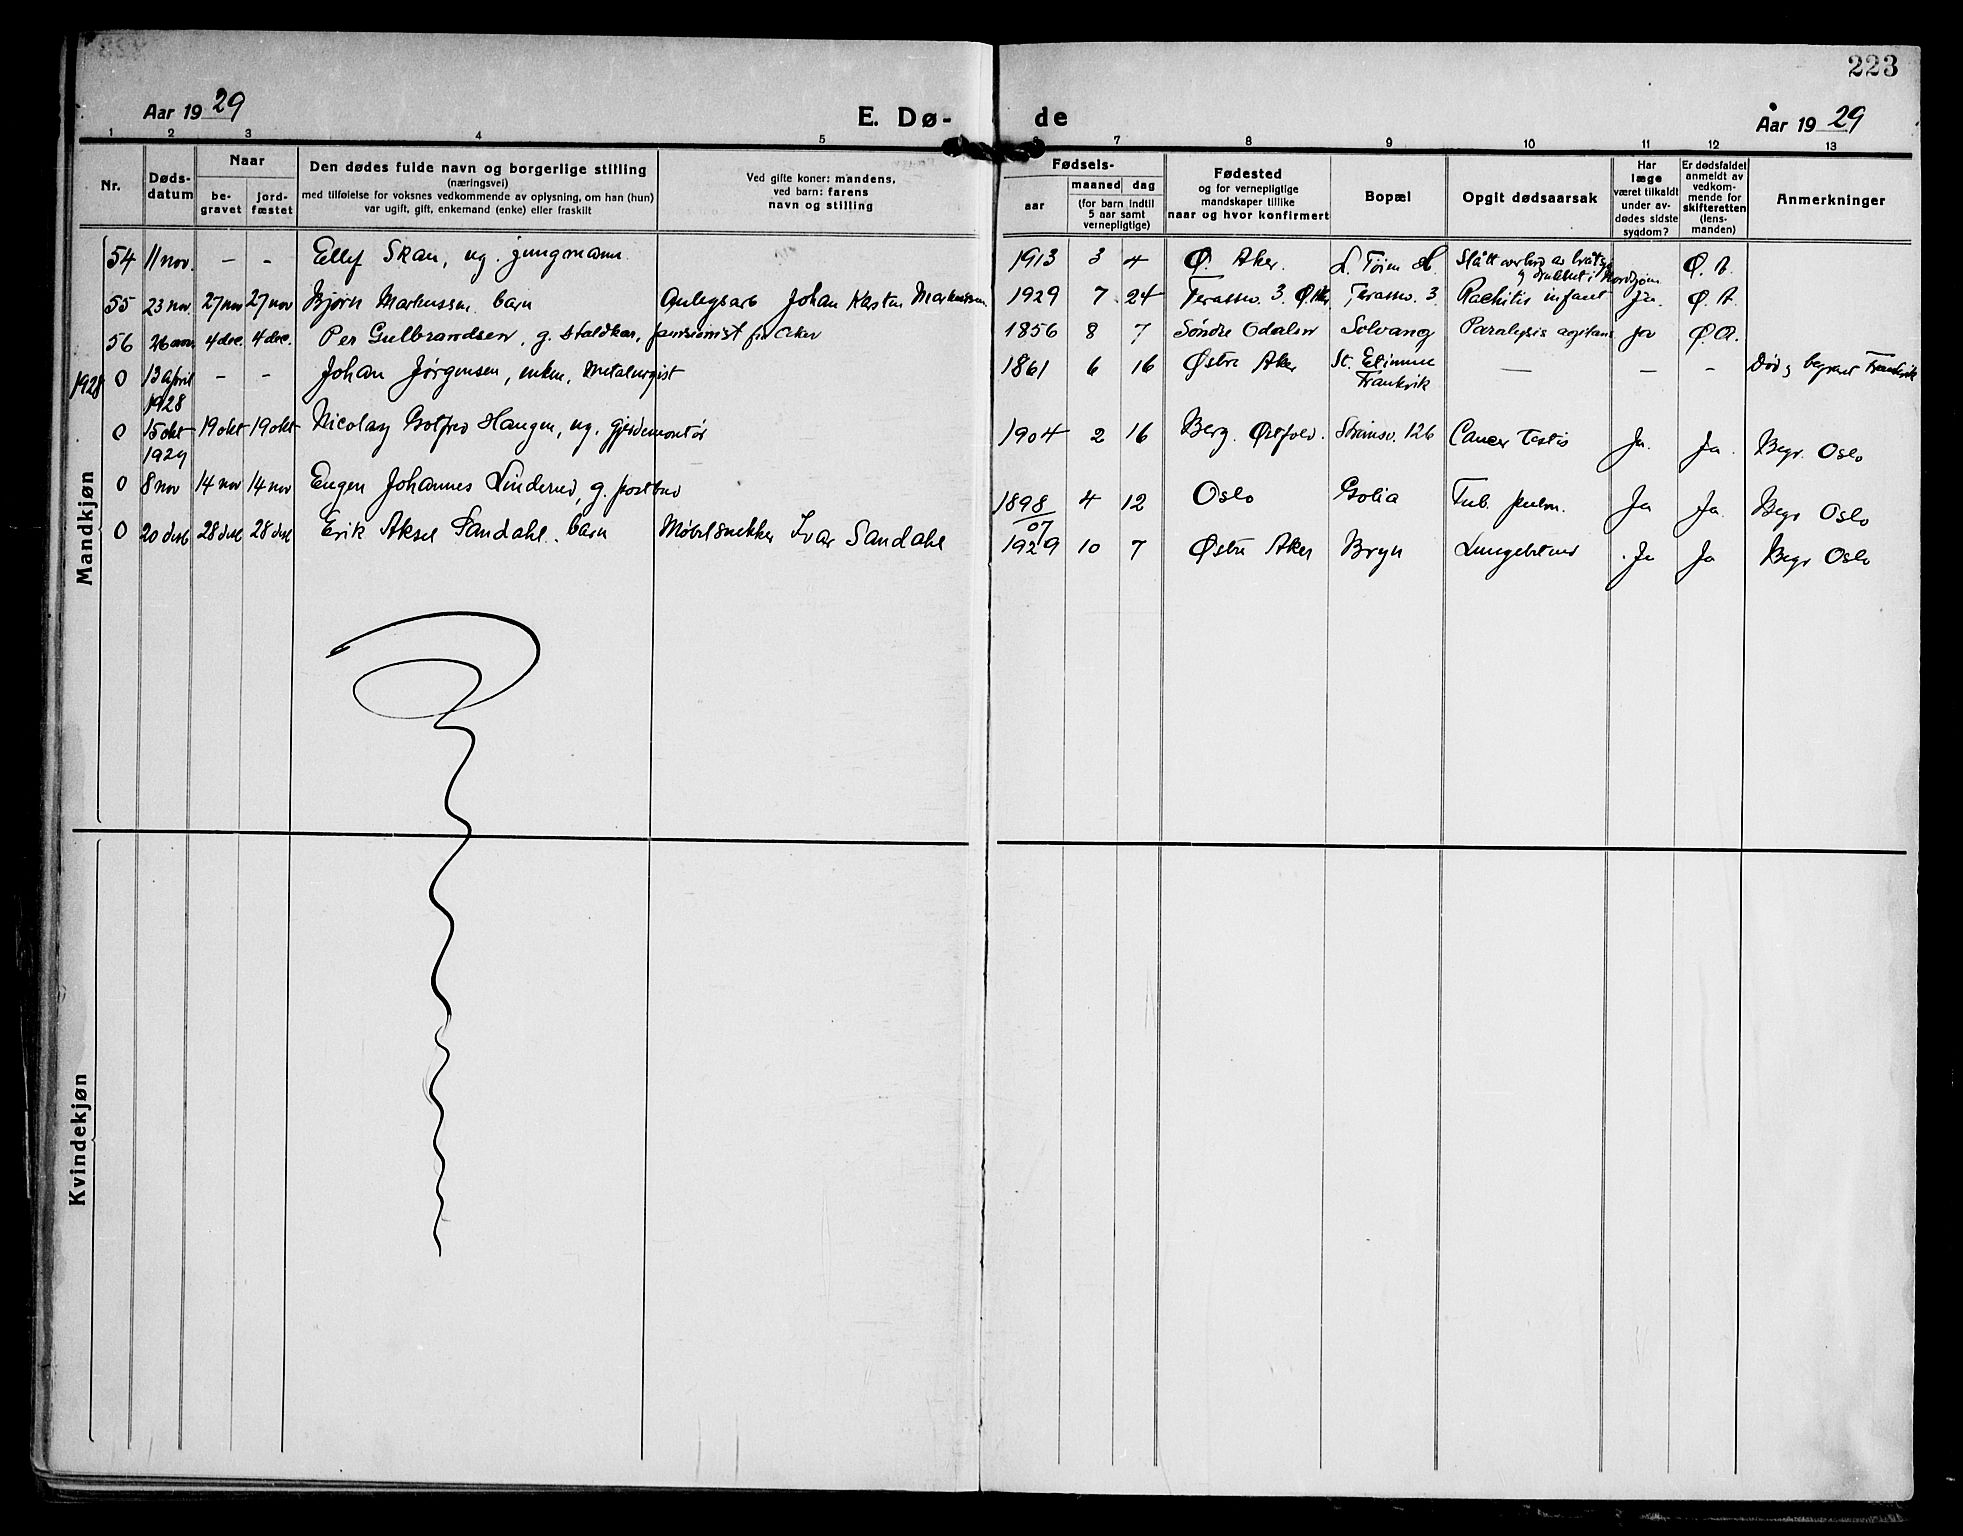 223
Aar 19 29
E. Dø-
de
Aar 19 29
1 2 3 4 5 7 8 9 10 11 12 13
Nr.
Døds-
datum
Naar
be-
gravet
jord-
fæstet
Den dødes fulde navn og borgerlige stilling
(næringsvei)
med tilføielse for voksnes vedkommende av oplysning, om han (hun)
var ugift, gift, enkemand (enke) eller fraskilt
Ved gifte koner: mandens,
ved barn: farens
navn og stilling
Fødsels-
aar
maaned dag
(for barn indtil
5 aar samt
vernepligtige)
Fødested
og for vernepligtige
mandskaper tillike
naar og hvor konfirmert
Bopæl
Opgit dødsaarsak
Har
læge
været tilkaldt
under av-
dødes sidste
sygdom?
Er dødsfaldet
anmeldt av
vedkom-
mende for
skifteretten
(lens-
manden)
Anmerkninger
Mandkjøn
54 11 nov. – – Ellef Skau, ug. jungmann 1913 3 4 Ø. Aker. L. Tøien Slått overbord av og druknet i Nordsjøen Ø. A.
55 23 nov. 27 nov 27 nov Bjørn Markussen barn Anlegsarb Johan Markussen 1929 7 24 Terassv. 3. Ø. Aker Terassv. 3. Rachitis infant Ja. Ø. A.
56 26 nov. 4 dec. 4 dec. Per Gulbrandsen, g. staldkar, pensionist fra Aker 1856 8 7 Søndre Odalen Solvang Paralysis agitans ja Ø. A.
1928 0 13 april 1928 – – Johan Jørgensen, enkm. Metalurgist 1861 6 16 Østre Aker St. Etienne Frankrik — — – Død og begravet Frankrik
0 15 okt 1929 19 okt 19 okt Nicolay Gotfred Haugen, ug. gjerdemontør 1904 2 16 Berg. Østfold. Strømsv. 126 Cancer testis Ja. Ja. Begr. Oslo
0 8 nov 14 nov 14 nov Eugen Johannes Linderud, g. postbud 1898 4 12 Oslo Golia Tub. pulm. Ja Ja. Begr Oslo
0 20 desb 28 desb 28 desb Erik Aksel Sandahl. barn Møbelsnekker Ivar Sandahl 07 1929 10 7 Østre Aker Bryn Lungebetend Ja Ja Begr Oslo
Kvindekjøn